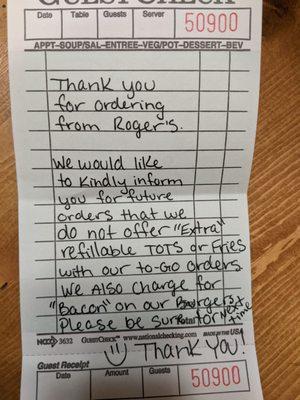 GUEST CHECK
Date Table Guests Server 50900
APPT-SOUP/SAL-ENTREE-VEG/POT-DESSERT-BEV
Thank you
for ordering
from Roger's.
We would like
to Kindly inform
you for future
orders that we
do not offer "Extra"
refillable TOTS or Fries
with our to-Go orders
We Also Charge for
"Bacon" on our Burgers,
Please be sure for NEXT time
Total
3632 GUESTCHECK™ www.nationalchecking.com MADE IN THE USA
Thank you!
Guest Receipt
Date Amount Guests 50900